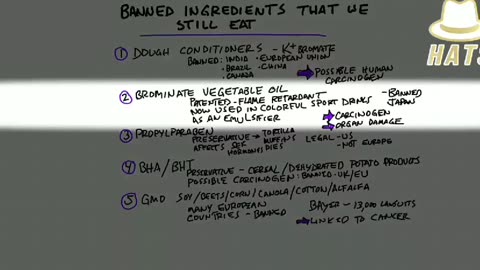 BANNED INGREDIENTS THAT WE
STILL EAT
HATS
1 DOUGH CONDITIONERS - K+ BROMATE
BANNED: INDIA · EUROPEAN UNION
· BRAZIL · CHINA
· CANADA
POSSIBLE HUMAN
CARCINOGEN
2 BROMINATE VEGETABLE OIL
PATENTED - FLAME RETARDANT
NOW USED IN COLORFUL SPORT DRINKS
AS AN EMULSIFIER
- BANNED
JAPAN
CARCINOGEN
ORGAN DAMAGE
3 PROPYLPARABEN
PRESERVATIVE → TORTILLA
MUFFINS
DIES
AFFECTS SEX
HORMONES
LEGAL - US
- NOT EUROPE
4 BHA/BHT
PRSERVATIVE - CEREAL/DEHYDRATED POTATO PRODUCTS
POSSIBLE CARCINOGEN: BANNED - UK/EU
5 GMO SOY/BEETS/CORN/CANOLA/COTTON/ALFALFA
MANY EUROPEAN
COUNTRIES - BANNED
BAYER - 13,000 LAWSUITS
LINKED TO CANCER